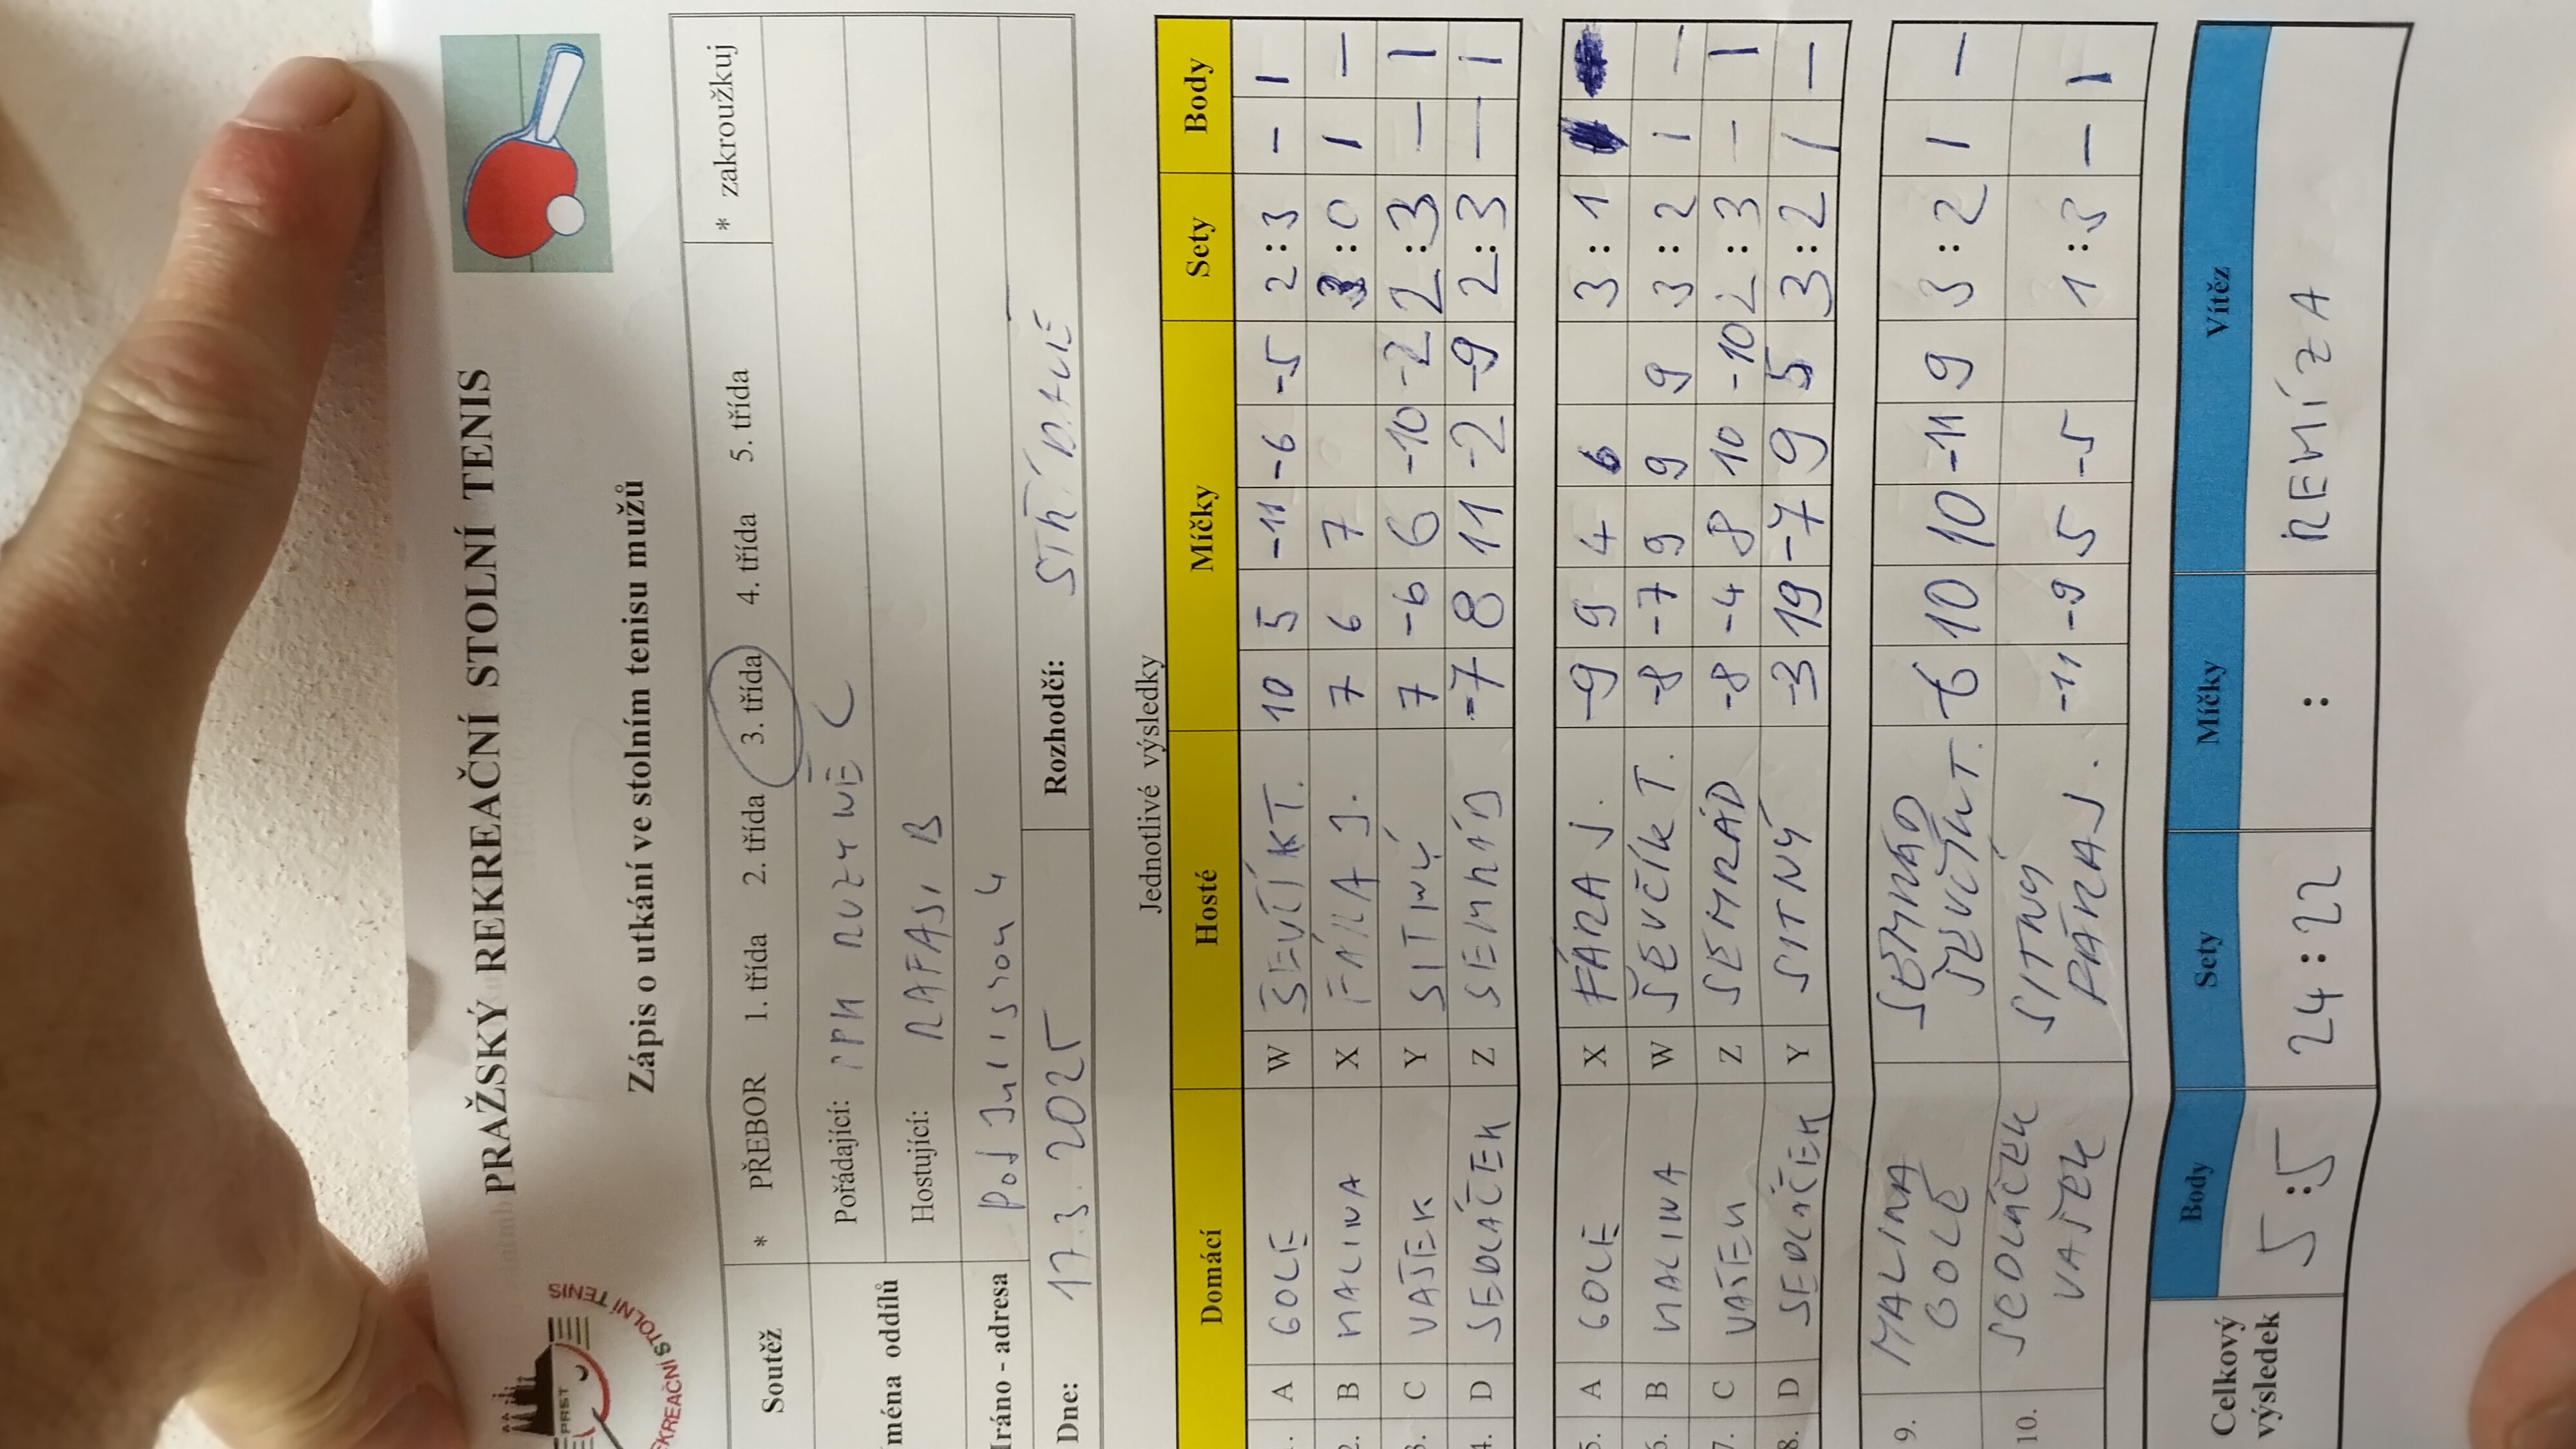 PRAŽSKÝ REKREAČNÍ STOLNÍ TENIS
Zápis o utkání ve stolním tenisu mužů
Soutěž * PŘEBOR 1. třída 2. třída 3. třída 4. třída 5. třída * zakroužkuj
Pořádající: C
Hostující: RAFASI B
Pod 4
Dne: 17.3. 2025 Rozhodčí: STŘÍDAVĚ
Jednotlivé výsledky
Domácí Hosté Míčky Sety Body
A GOLE W ŠEVČÍK T. 10 5 -11 -6 -5 2:3 – 1
B MALINA X FÁRA J. 7 6 7 3:0 1 –
C VAŠEK Y SITNÝ 7 -6 6 -10 -2 2:3 – 1
4. D SEDLÁČEK Z SEMRÁD -7 8 11 -2 -9 2:3 – 1
5. A GOLE X FÁRA J. -9 9 4 6 3:1
6. B MALINA W ŠEVČÍK T. -8 -7 9 9 9 3:2 1 –
7. C VAŠEK Z SEMRÁD -8 -4 8 10 -10 2:3 – 1
8. D SEDLÁČEK Y SITNÝ -3 19 -7 9 5 3:2 1 –
9. MALINA GOLE SEMRÁD ŠEVČÍK T. -6 10 10 -11 9 3:2 1 –
10. SEDLÁČEK VAŠEK SITNÝ FÁRA J. -11 -9 5 -5 1:3 – 1
Celkový výsledek
Body Sety Míčky Vítěz
5:5 24:22 : REMÍZA